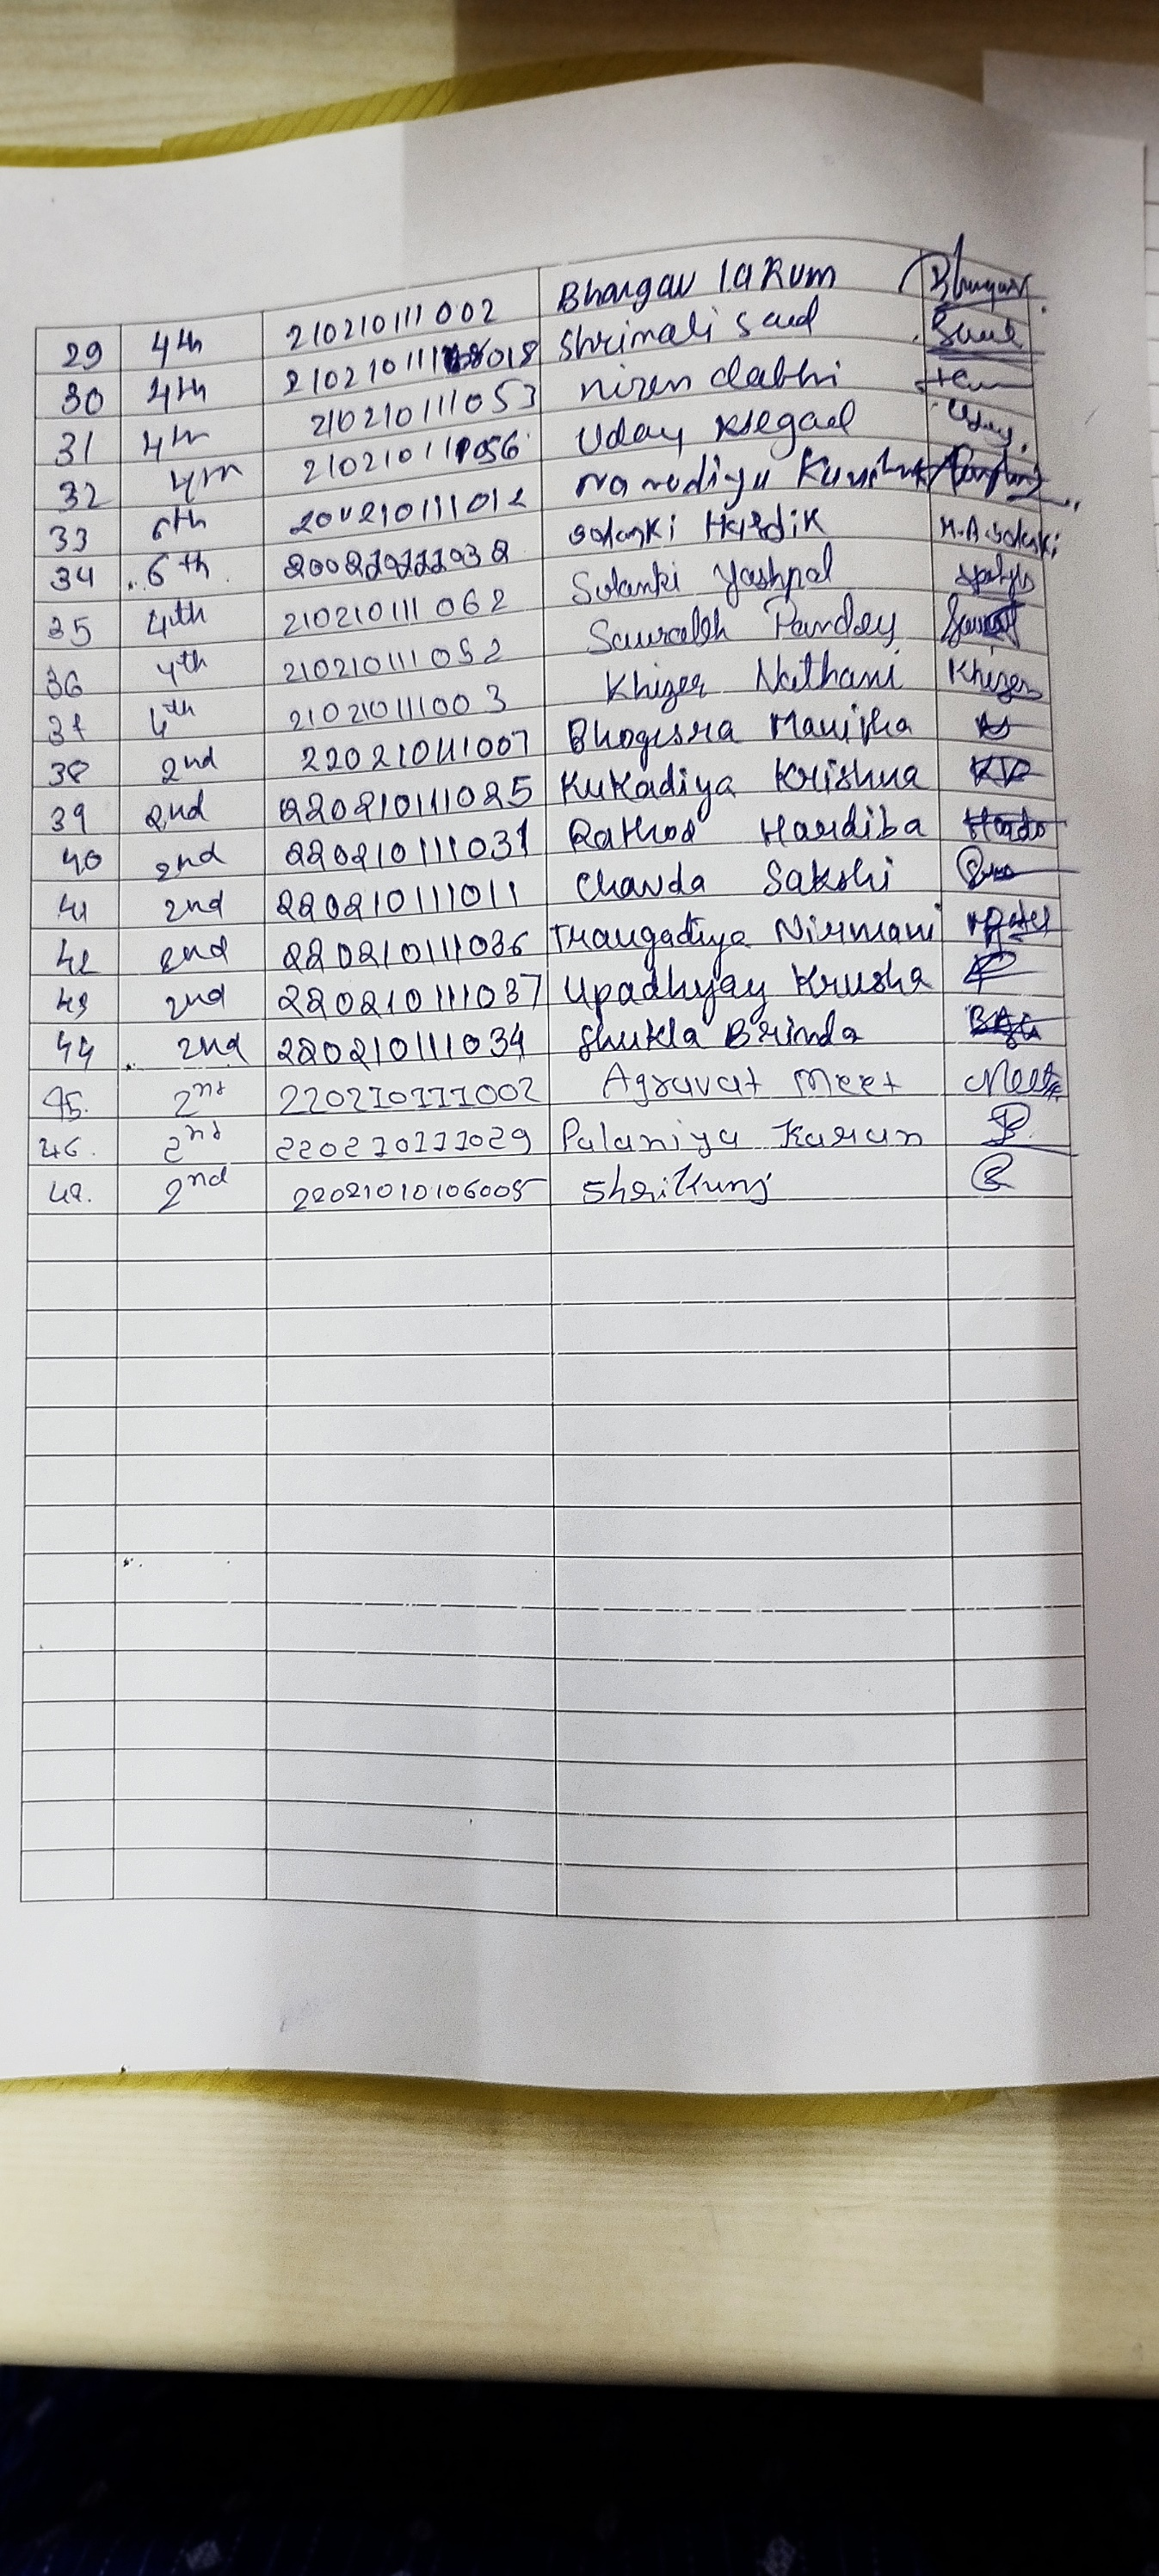 29 4th 210210111002 Bhargav Larum Bhargav
30 4th 210210111018 Shrimali Saud
31 4th 210210111053 Niren dabhi
32 4th 210210111056 Uday Uday
33 6th 200210111012
34 6th 200210111038 Solanki Hardik H.A Solanki
35 4th 210210111062 Solanki Yashpal
36 4th 210210111052 Saurabh Pandey
37 4th 210210111003 Khizer Nathani Khizer
38 2nd 220210111007 Bhogesra Manisha
39 2nd 220210111025 Kukadiya Krishna
40 2nd 220210111031 Rathod Hardiba
41 2nd 220210111011 Chavda Sakshi
42 2nd 220210111036 Thangadiya Nirmani
43 2nd 220210111037 Upadhyay Krusha
44 2nd 220210111034 Shukla Brinda
45. 2nd 220210111002 Agravat Meet Meet
46. 2nd 220210111029 Palaniya Karan
48. 2nd 22021010106005 Shrikunj